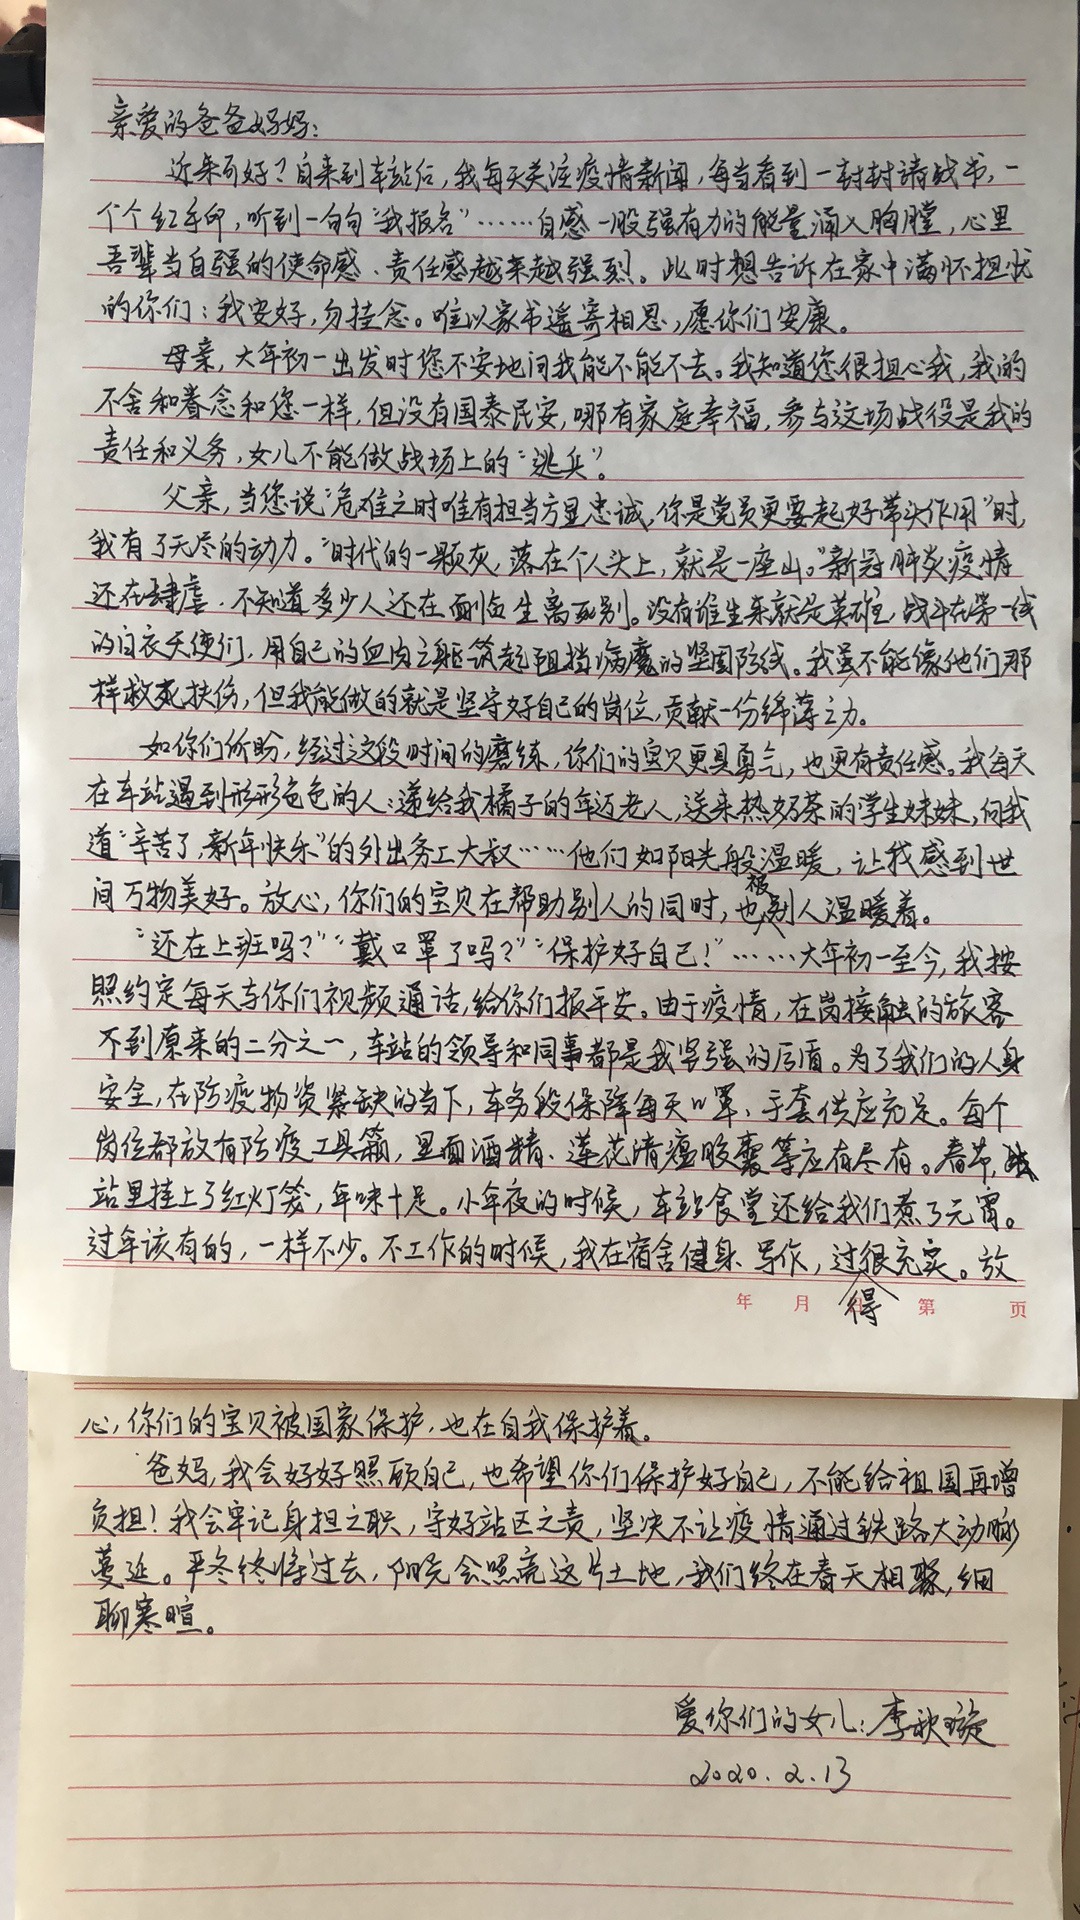 亲爱的爸爸妈妈：
近来可好？自来到车站后，我每天关注疫情新闻，每当看到一封封请战书，一
个个红手印，听到一句句“我报名”……自感一股强有力的能量涌入胸膛，心里
吾辈当自强的使命感、责任感越来越强烈。此时想告诉在家中满怀担忧
的你们：我安好，勿挂念。唯以家书遥寄相思，愿你们安康。
母亲，大年初一出发时您不安地问我能不能不去。我知道您很担心我，我的
不舍和眷念和您一样，但没有国泰民安，哪有家庭幸福，参与这场战役是我的
责任和义务，女儿不能做战场上的“逃兵”。
父亲，当您说“危难之时唯有担当方显忠诚，你是党员更要起好带头作用”时，
我有了无尽的动力。“时代的一颗灰，落在个人头上，就是一座山。”新冠肺炎疫情
还在肆虐，不知道多少人还在面临生离死别。没有谁生来就是英雄，战斗在第一线
的白衣天使们，用自己的血肉之躯筑起阻挡病魔的坚固防线。我虽不能像他们那
样救死扶伤，但我能做的就是坚守好自己的岗位，贡献一份绵薄之力。
如你们所盼，经过这段时间的磨练，你们的宝贝更具勇气，也更有责任感。我每天
在车站遇到形形色色的人：递给我橘子的年迈老人，送来热奶茶的学生妹妹，向我
道“辛苦了，新年快乐”的外出务工大叔……他们如阳光般温暖，让我感到世
间万物美好。放心，你们的宝贝在帮助别人的同时，也被别人温暖着。
“还在上班吗？”“戴口罩了吗？”“保护好自己！”……大年初一至今，我按
照约定每天与你们视频通话，给你们报平安。由于疫情，在岗接触的旅客
不到原来的二分之一，车站的领导和同事都是我坚强的后盾。为了我们的人身
安全，在防疫物资紧缺的当下，车务段保障每天口罩、手套供应充足。每个
岗位都放有防疫工具箱，里面酒精、莲花清瘟胶囊等应有尽有。春节，
站里挂上了红灯笼，年味十足。小年夜的时候，车站食堂还给我们煮了元宵。
过年该有的，一样不少。不工作的时候，我在宿舍健身、写作，过得很充实。放
年 月 日 第 页
心，你们的宝贝被国家保护，也在自我保护着。
爸妈，我会好好照顾自己，也希望你们保护好自己，不能给祖国再增
负担！我会牢记身担之职，守好站区之责，坚决不让疫情通过铁路大动脉
蔓延。严冬终将过去，阳光会照亮这片土地，我们终在春天相聚，细
聊寒暄。
爱你们的女儿：李秋璇
2020.2.13